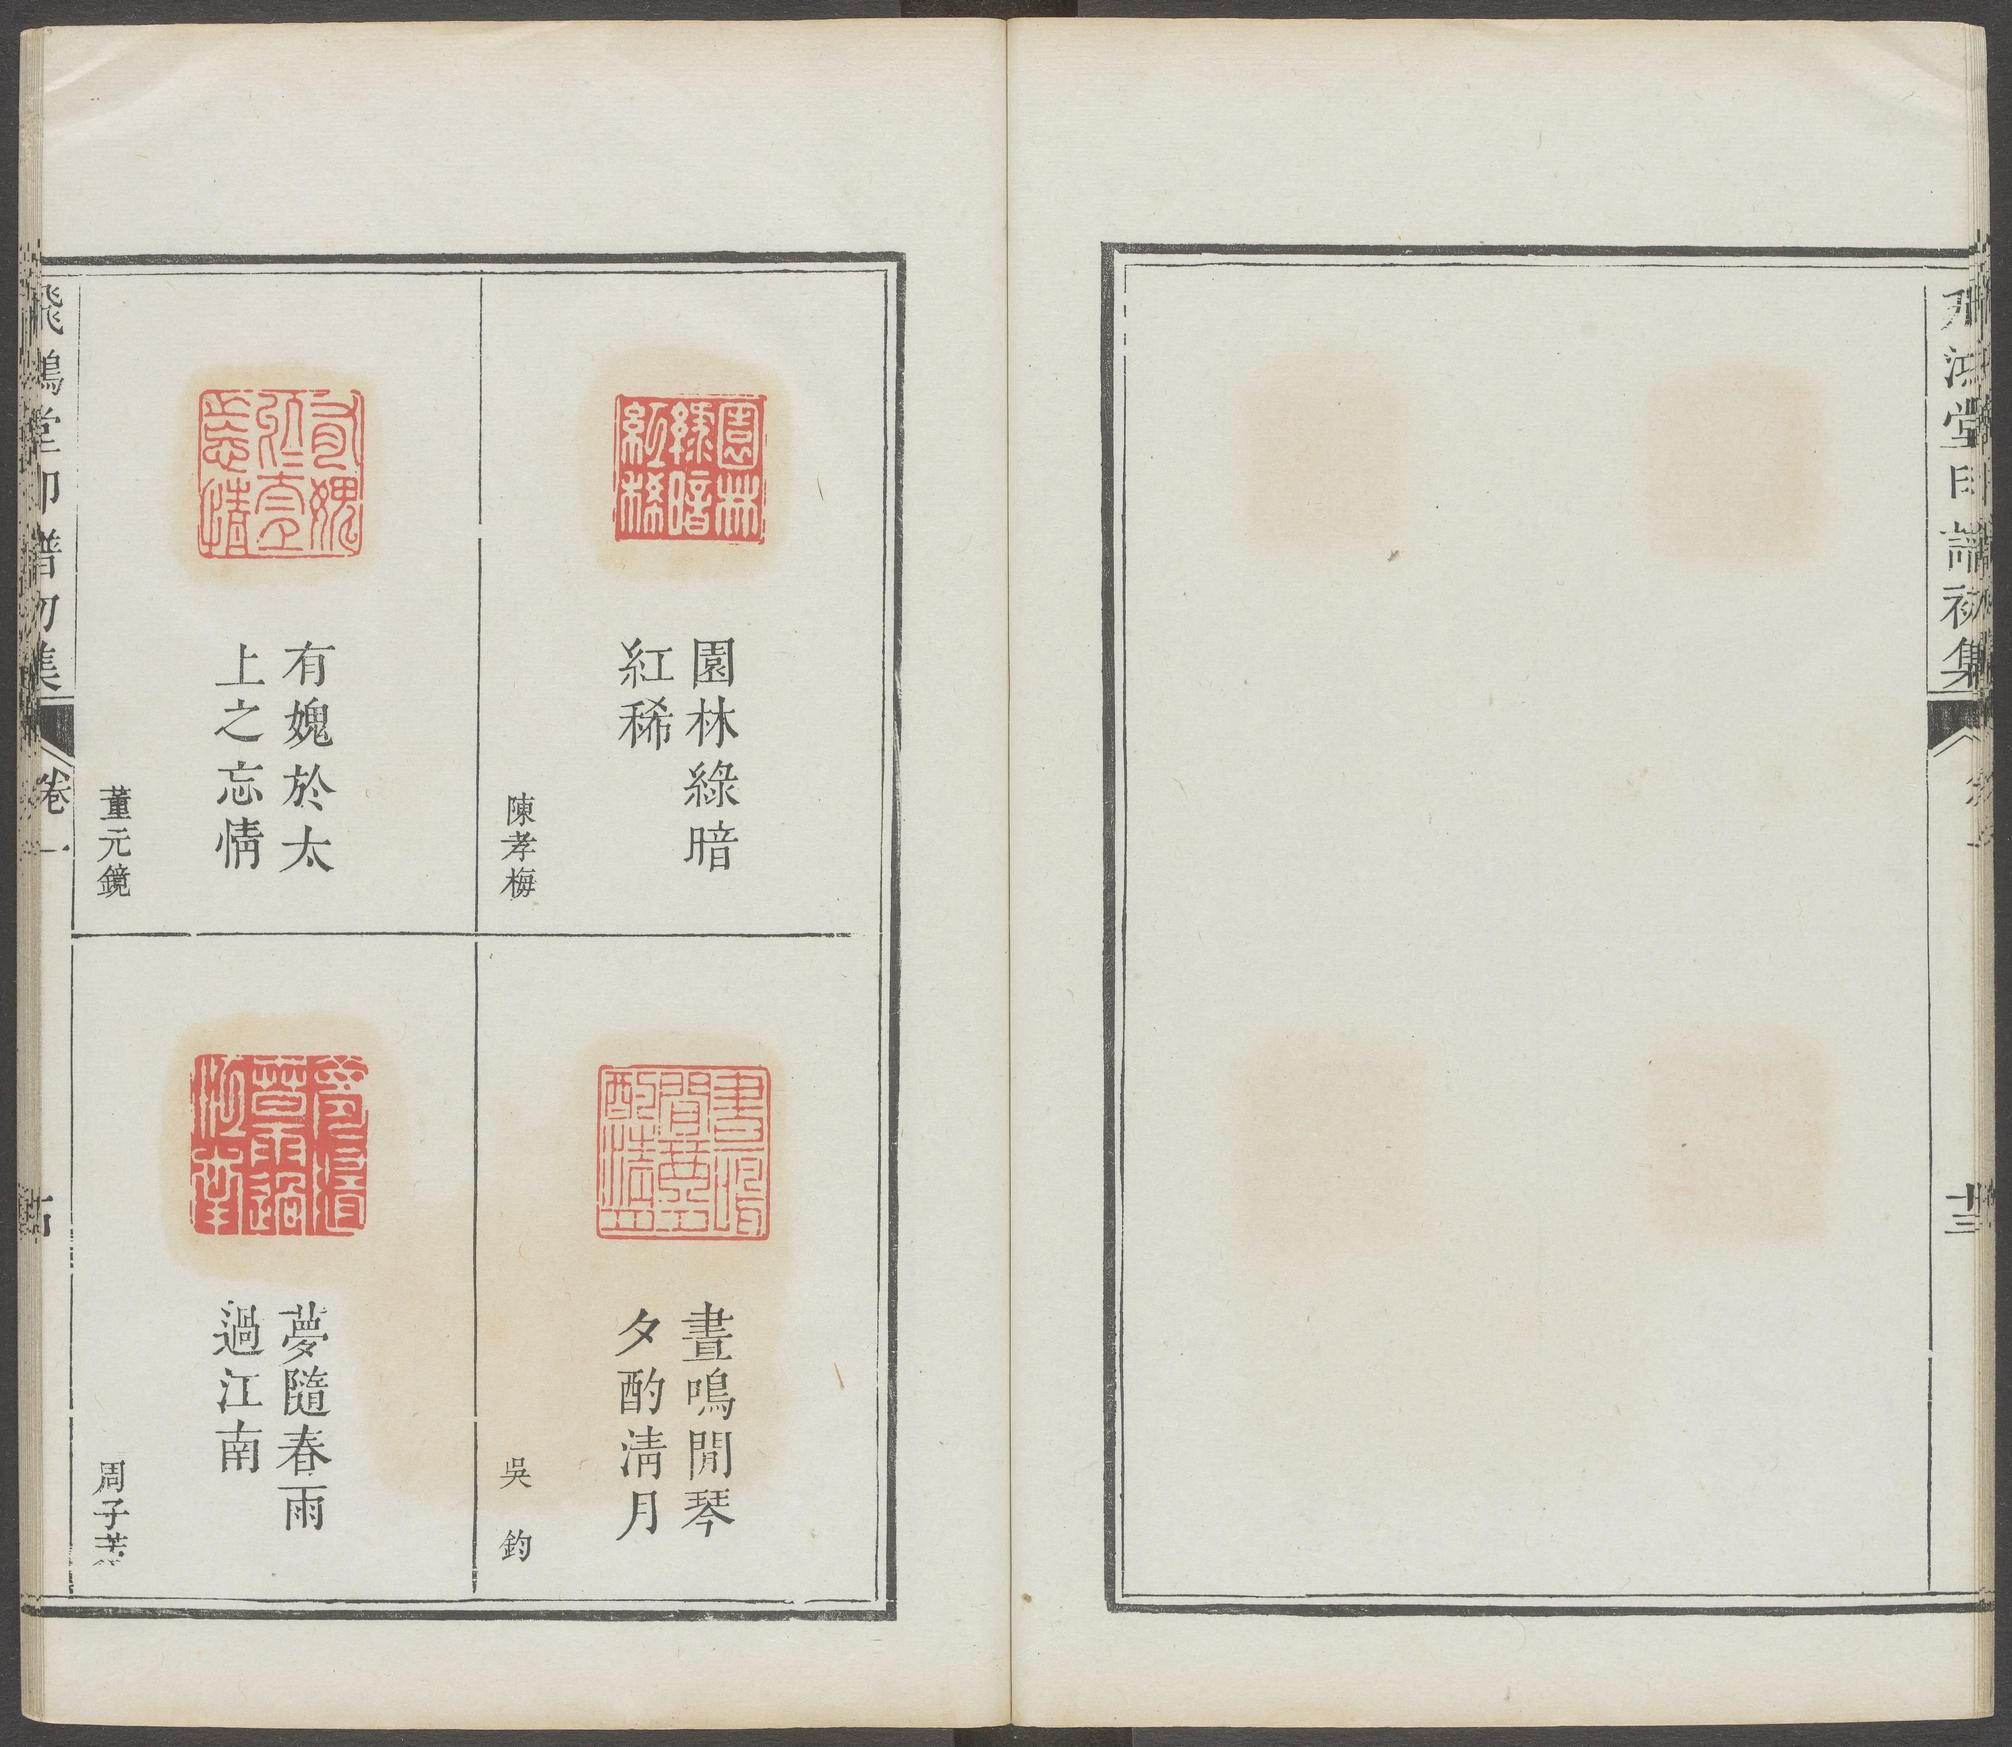 飛鴻堂印譜初集
廿三
園林綠暗
紅稀
陳孝梅
晝鳴閒琴
夕酌清月
吳鈞
有媿於太
上之忘情
董元鏡
夢隨春雨
過江南
周子
飛鴻堂印譜初集
卷一